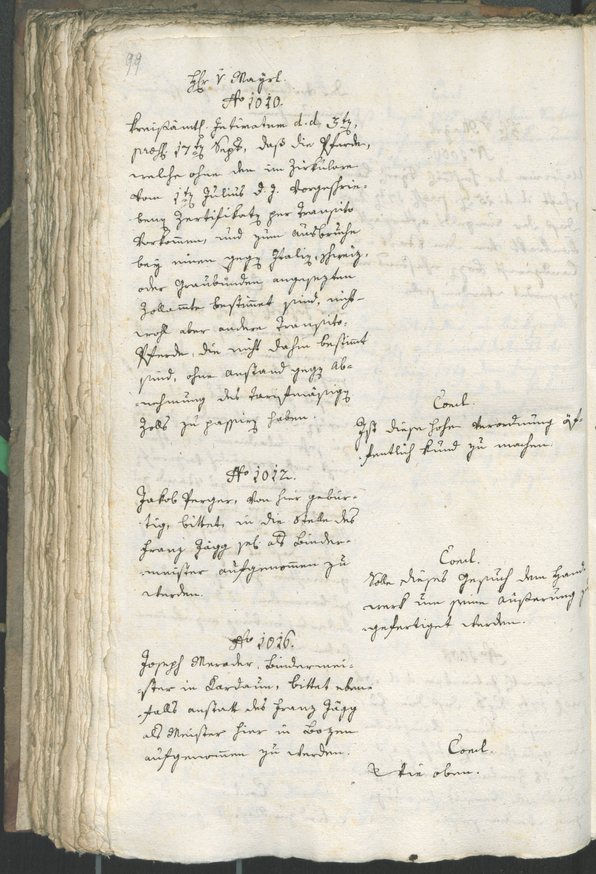 99
Hr. v. Mayrl.
No 1010.
Kreisämtl. Intimatum d. d. 3ten,
praes. 17ten Sept., daß die Pferde,
welche ohne den im Zirkulare
vom 1ten Julius d. J. vorgeschrie-
benen Zertifikate per Transito
vorkommen, und zum Ausbruche
bey einem gegen Italien, Schweiz,
oder Graubünden angesezten
Zollamte bestimmt sind, nicht
wohl aber andere Transito-
Pferde, die nicht dahin bestimmt
sind, ohne Anstand gegen Ab-
nehmung des tarifmäßigen
Zolls zu passiren haben.
Concl.
Ist diese hohe Verordnung öf-
fentlich kund zu machen.
No 1012.
Jakob Perger, von hier gebür-
tig, bittet, in die Stelle des
Franz Jägg sel. als Binder-
meister aufgenommen zu
werden.
Concl.
Solle dieses Gesuch dem Hand-
werk um seine Äußerung
gefertiget werden.
No 1016.
Joseph Merader, Bindermei-
ster in Kardaun, bittet eben-
falls anstatt des Franz Jägg
als Meister hier in Bozen
aufgenommen zu werden.
Concl.
Wie oben.